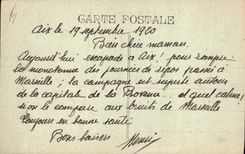 CARTE POSTALE
Aix le 19 septembre 1920
Bien chère maman.
Aujourd'hui escapade à Aix! pour rompre
la monotonie des journées de repos passées à
Marseille; la campagne est superbe autour
de la capitale de la Provence et quel calme
si on le compare aux bruits de Marseille
Toujours en bonne santé
Bons baisers
Henri